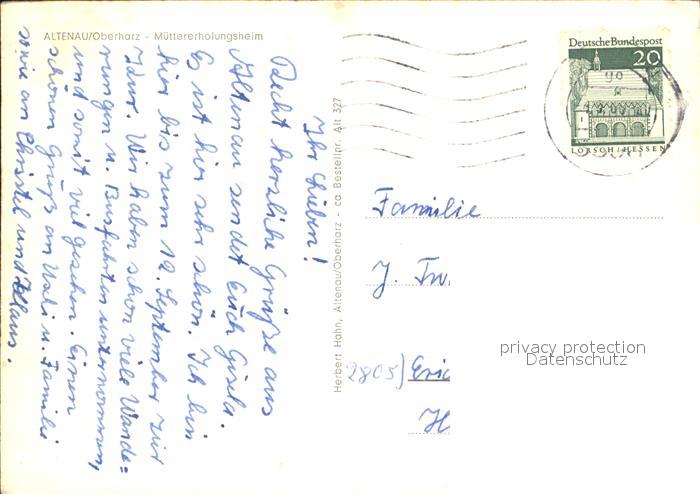 ALTENAU/Oberharz - Müttererholungsheim
Ihr Lieben!
Recht herzliche Grüße aus
Altenau sendet Euch Gisela.
Es ist hier sehr schön. Ich bin
hier bis zum 12. September zur
Kur. Wir haben schon viele Wande=
rungen u. Busfahrten unternommen,
und somit viel gesehen. Einen
schönen Gruß an Uschi u. Familie
sowie an Christel und Klaus.
Herbert Hahn, Altenau/Oberharz - ca Bestellnr. Alt 327
Deutsche Bundespost
20
LORSCH/HESSEN
Familie
J. Tw.
2805) Eric
H
privacy protection
Datenschutz